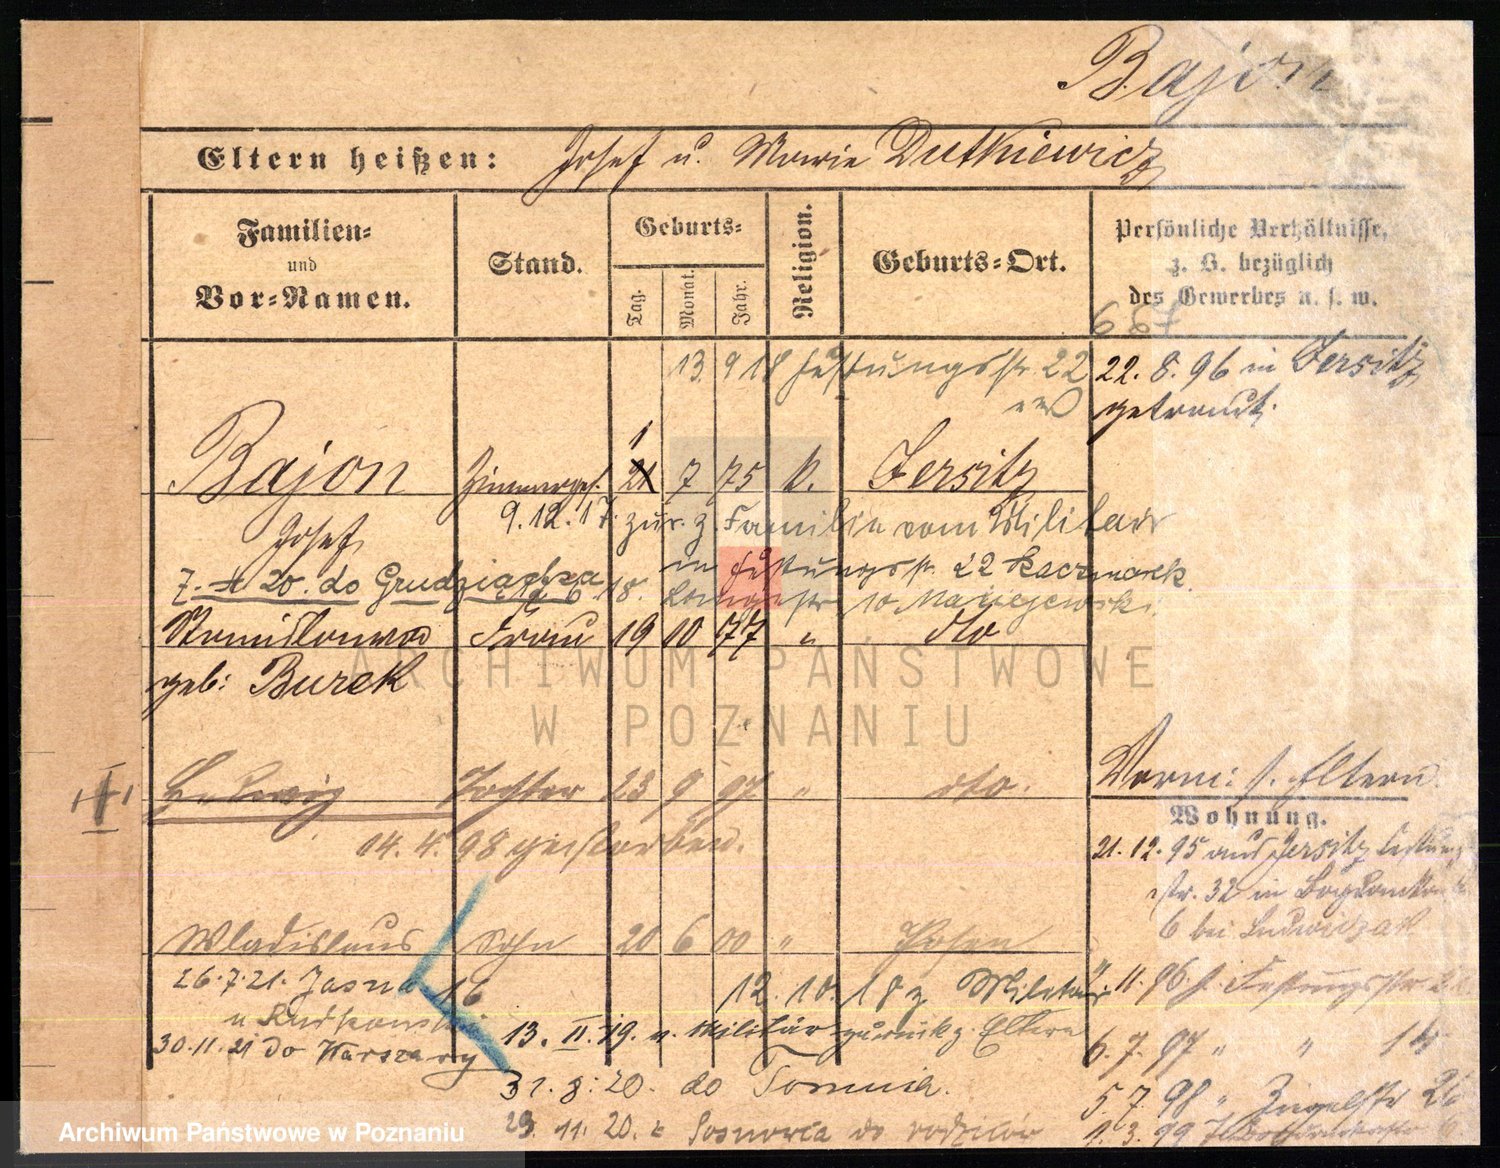 Bajon
Eltern heißen: Josef u. Marie Dutkiewicz
Familien- und Vor-Namen.
Stand.
Geburts-
Tag. Monat. Jahr.
Religion.
Geburts-Ort.
Persönliche Verhältnisse,
z. B. bezüglich
des Gewerbes u. s. w.
13. 9 18 Festungsstr. 22
22. 8. 96 in Jersitz
getraut.
1
Bajon Zimmerges. 21 7 75 k. Jersitz
Josef
9.12.17. zur. z. Familie vom Militär
in Festungsstr. 22 Kaczmarek
7. 20. do Grudziądza
6. 18. Langestr 10 Maciejewski
Stanislawa Frau 19 10 77 " dto
geb: Burek
ARCHIWUM PAŃSTWOWE
W POZNANIU
Hedwig Tochter 23 9 97 " dto.
14. 4. 98 gestorben.
Vorm: s. Eltern
Wohnung.
21. 12. 95 aus Jersitz
str. 32 in
6 bei Ludwiczak
Wladislaus Sohn 20 6 00 " Posen
26.7.21. Jasna 16
12. 10. 18 z Militär
11. 96. Festungsstr.
13. II. 19. v. Militär zurück z. Eltern
30.11.21 do Warszawy
6. 7. 97 " "
31. 8. 20. do Torunia.
5. 7. 98 "
29. 11. 20. z Sosnowca do rodziców
1. 3. 99
Archiwum Państwowe w Poznaniu